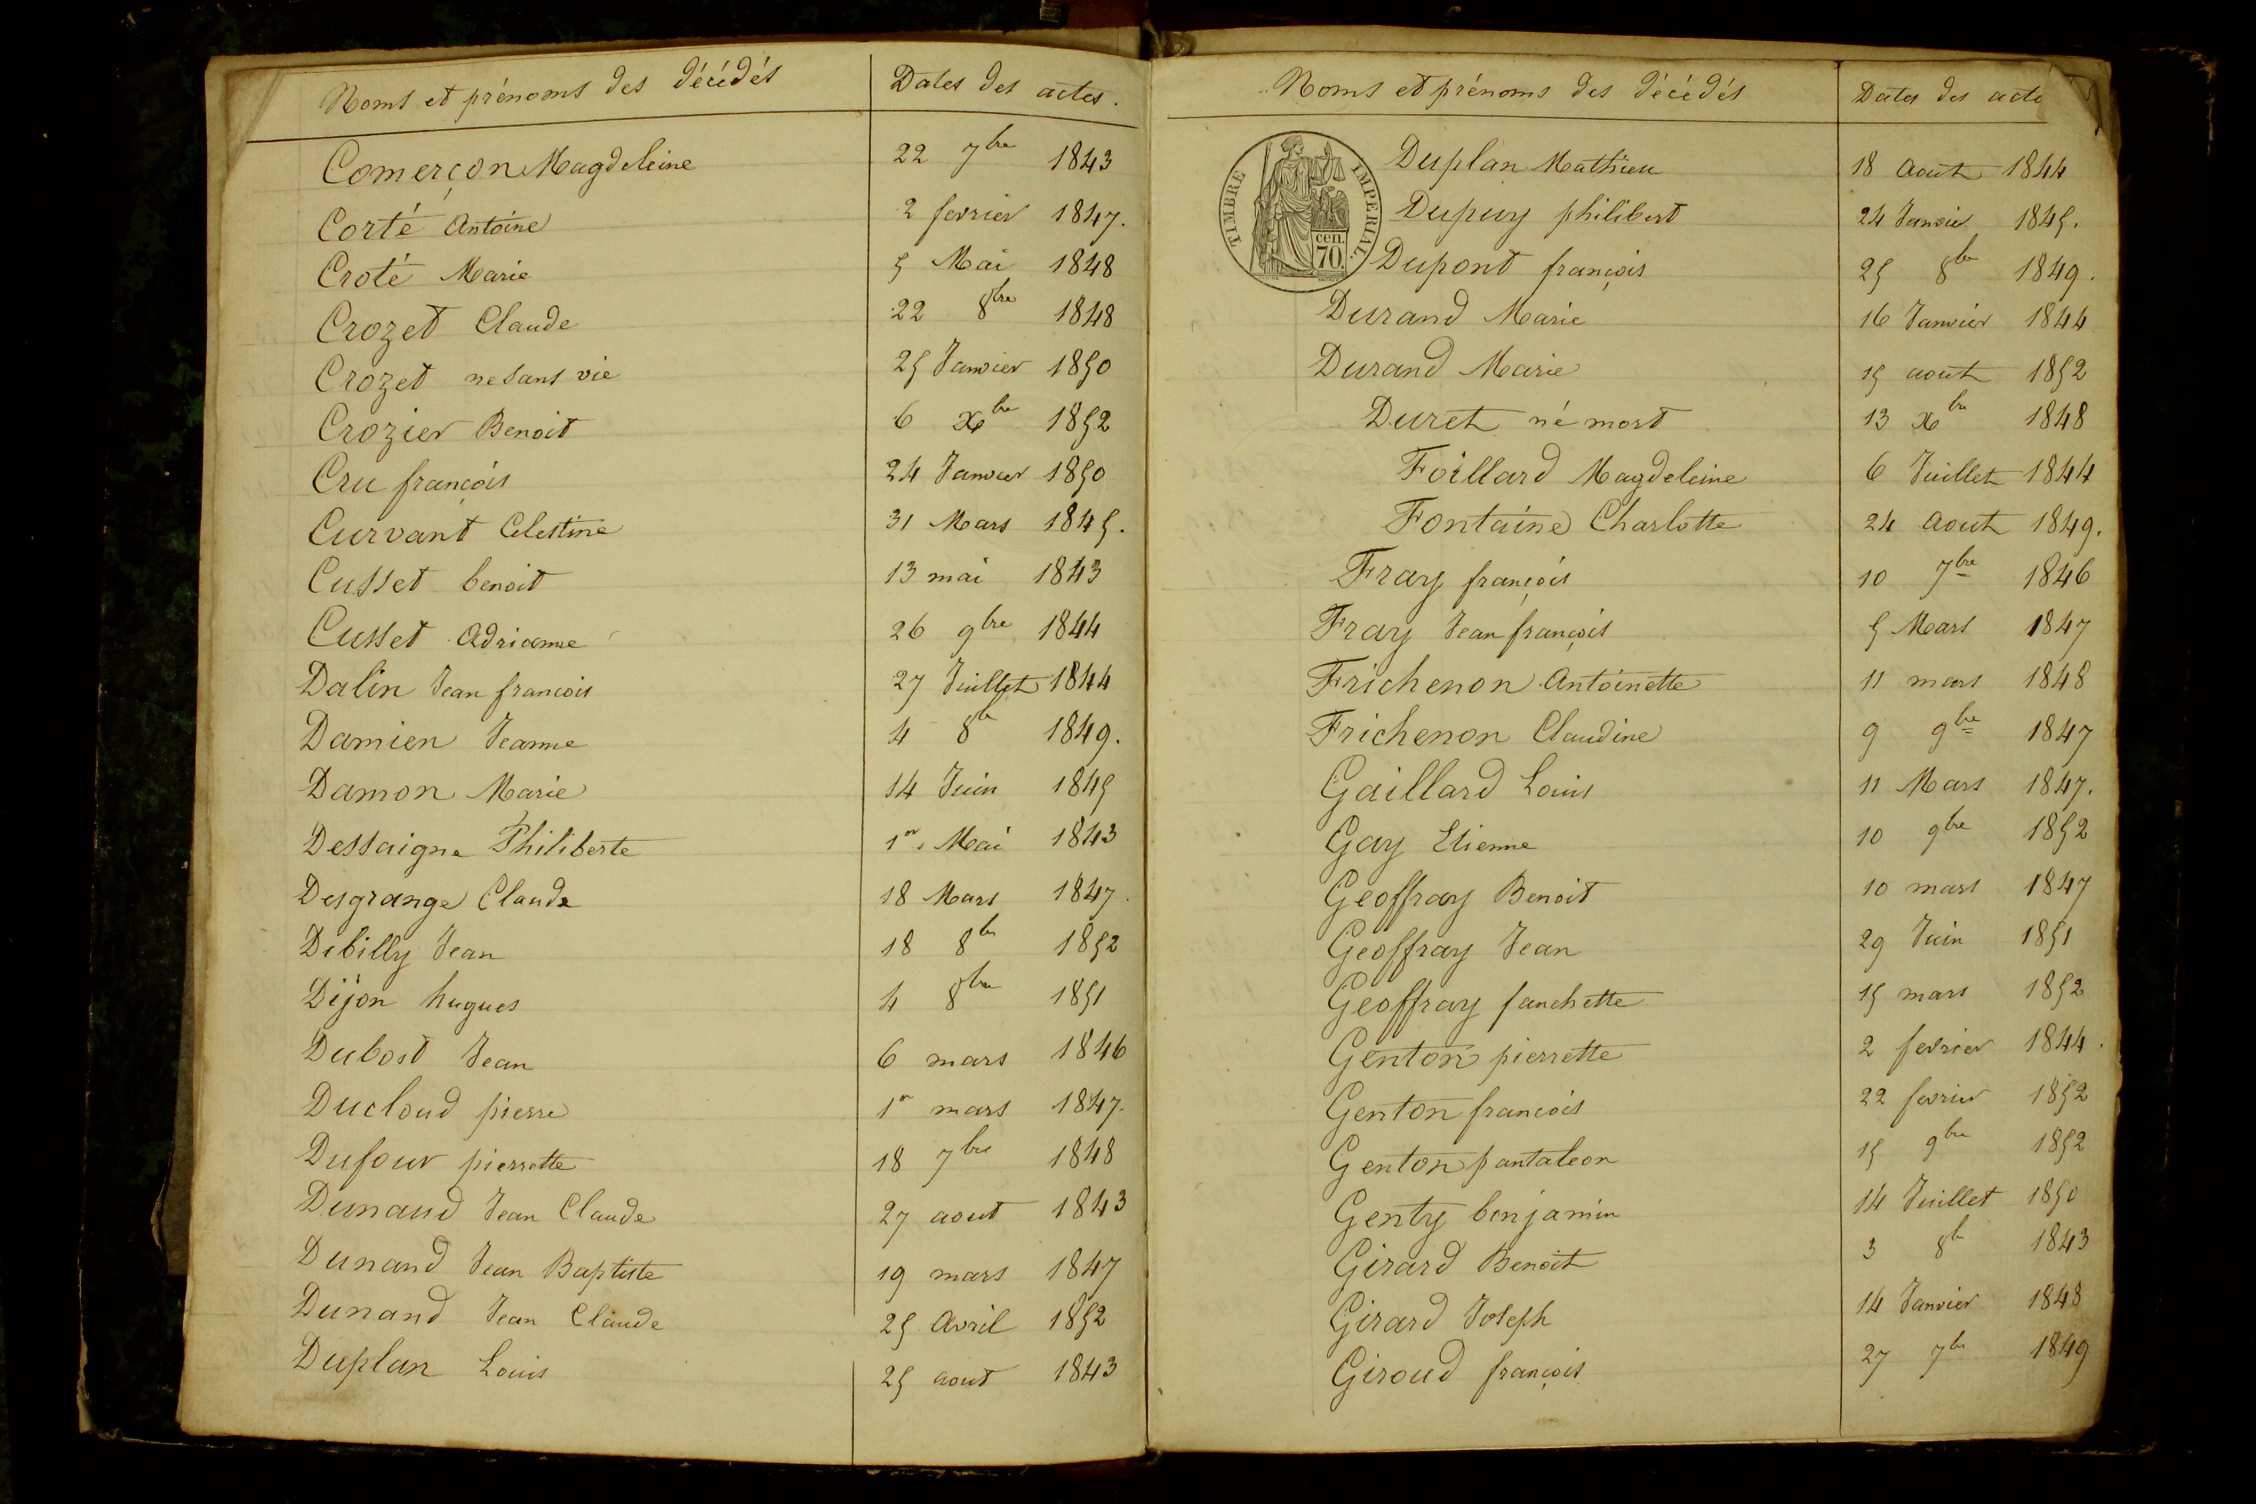 Noms et prénoms des décédés Dates des actes.
Comerçon Magdeleine 22 7bre 1843
Corté Antoine 2 fevrier 1847.
Croté Marie 5 Mai 1848
Crozet Claude 22 8bre 1848
Crozet ne sans vie 25 Janvier 1850
Crozier Benoit 6 Xbre 1852
Cru françois 24 Janvier 1850
Curvant Celestine 31 Mars 1845.
Cusset benoit 13 mai 1843
Cusset Adrienne 26 9bre 1844
Dalin Jean francois 27 Juillet 1844
Damien Jeanne 4 8bre 1849.
Damon Marie 14 Juin 1845
Dessaigne Philiberte 1er Mai 1843
Desgrange Claude 18 Mars 1847.
Debilly Jean 18 8bre 1852
Dijon hugues 4 8bre 1851
Dubost Jean 6 mars 1846
Ducloud pierre 1er mars 1847.
Dufour pierrette 18 7bre 1848
Dunand Jean Claude 27 aout 1843
Dunand Jean Baptiste 19 mars 1847
Dunand Jean Claude 25 Avril 1852
Duplan Louis 25 aout 1843
Noms et prénoms des décédés Dates des acte
TIMBRE IMPERIAL.
cen. 70.
Duplan Mathieu 18 Aout 1844
Dupuy philibert 24 Janvier 1845.
Dupont françois 25 8bre 1849.
Durand Marie 16 Janvier 1844
Durand Marie 15 aout 1852
Duret né mort 13 Xbre 1848
Foillard Magdeleine 6 Juillet 1844
Fontaine Charlotte 24 Aout 1849.
Fray françois 10 7bre 1846
Fray Jean françois 5 Mars 1847
Frichenon Antoinette 11 mars 1848
Frichenon Claudine 9 9bre 1847
Gaillard Louis 11 Mars 1847.
Gay Etienne 10 9bre 1852
Geoffray Benoit 10 mars 1847
Geoffray Jean 29 Juin 1851
Geoffray fanchette 15 mars 1852
Genton pierrette 2 fevrier 1844.
Genton francois 22 fevrier 1852
Genton pantaleon 15 9bre 1852
Genty benjamin 14 Juillet 1850
Girard Benoit 3 8bre 1843
Girard Joseph 14 Janvier 1848
Giroud françois 27 7bre 1849